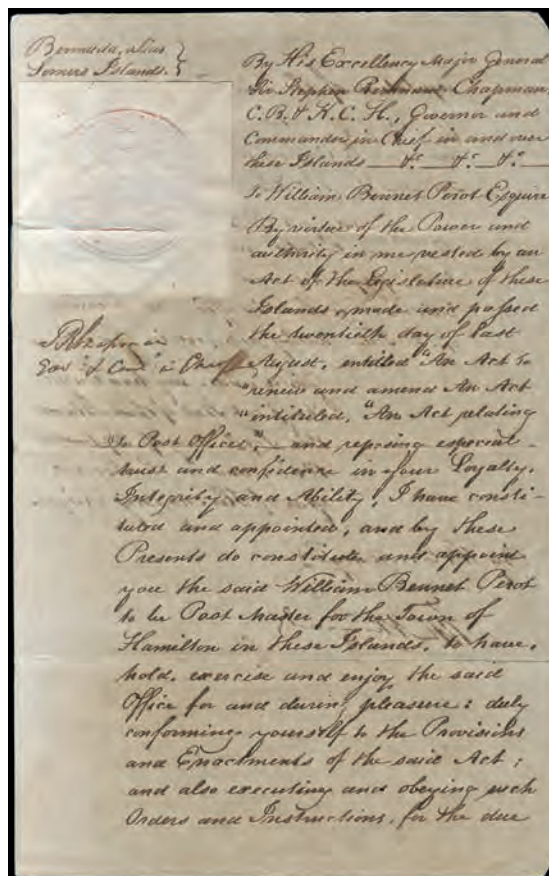 Bermuda, alias
Somers Islands. }
By His Excellency Major General
Sir Stephen Remnant Chapman,
C.B. & K.C.H., Governor and
Commander in Chief in and over
these Islands — &c. — &c. — &c.
To William Bennet Perot Esquire
By virtue of the Power and
authority in me vested by an
Act of the Legislature of these
Islands, made and passed
the twentieth day of last
August, entitled "An Act to
"renew and amend An Act
"intituled, "An Act relating
"to Post Offices," — and reposing especial
trust and confidence in your Loyalty,
Integrity and Ability, I have consti-
tuted and appointed, and by these
Presents do constitute and appoint
you the said William Bennet Perot
to be Post Master for the Town of
Hamilton in these Islands, to have,
hold, exercise and enjoy the said
Office for and during pleasure; duly
conforming yourself to the Provisions
and Enactments of the said Act;
and also executing and obeying such
Orders and Instructions, for the due
SRChapman
Gov. & Com. in Chief